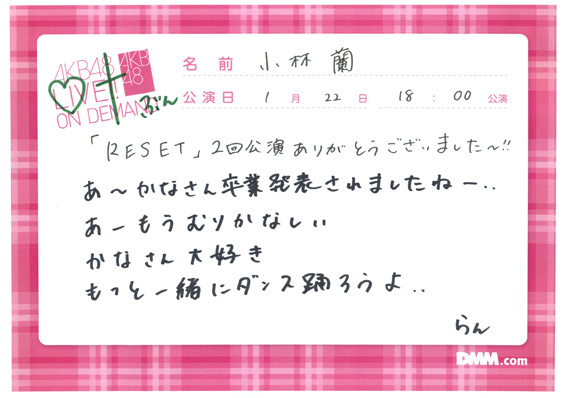 AKB48
LIVE!!
ON DEMAND
AKB
48
ぶん
名前 小林 蘭
公演日 1月 22日 18:00公演
「RESET」2回公演ありがとうございました〜!!
あ〜かなさん卒業発表されましたねー..
あーもうむりかなしい
かなさん大好き
もっと一緒にダンス踊ろうよ..
らん
DMM.com